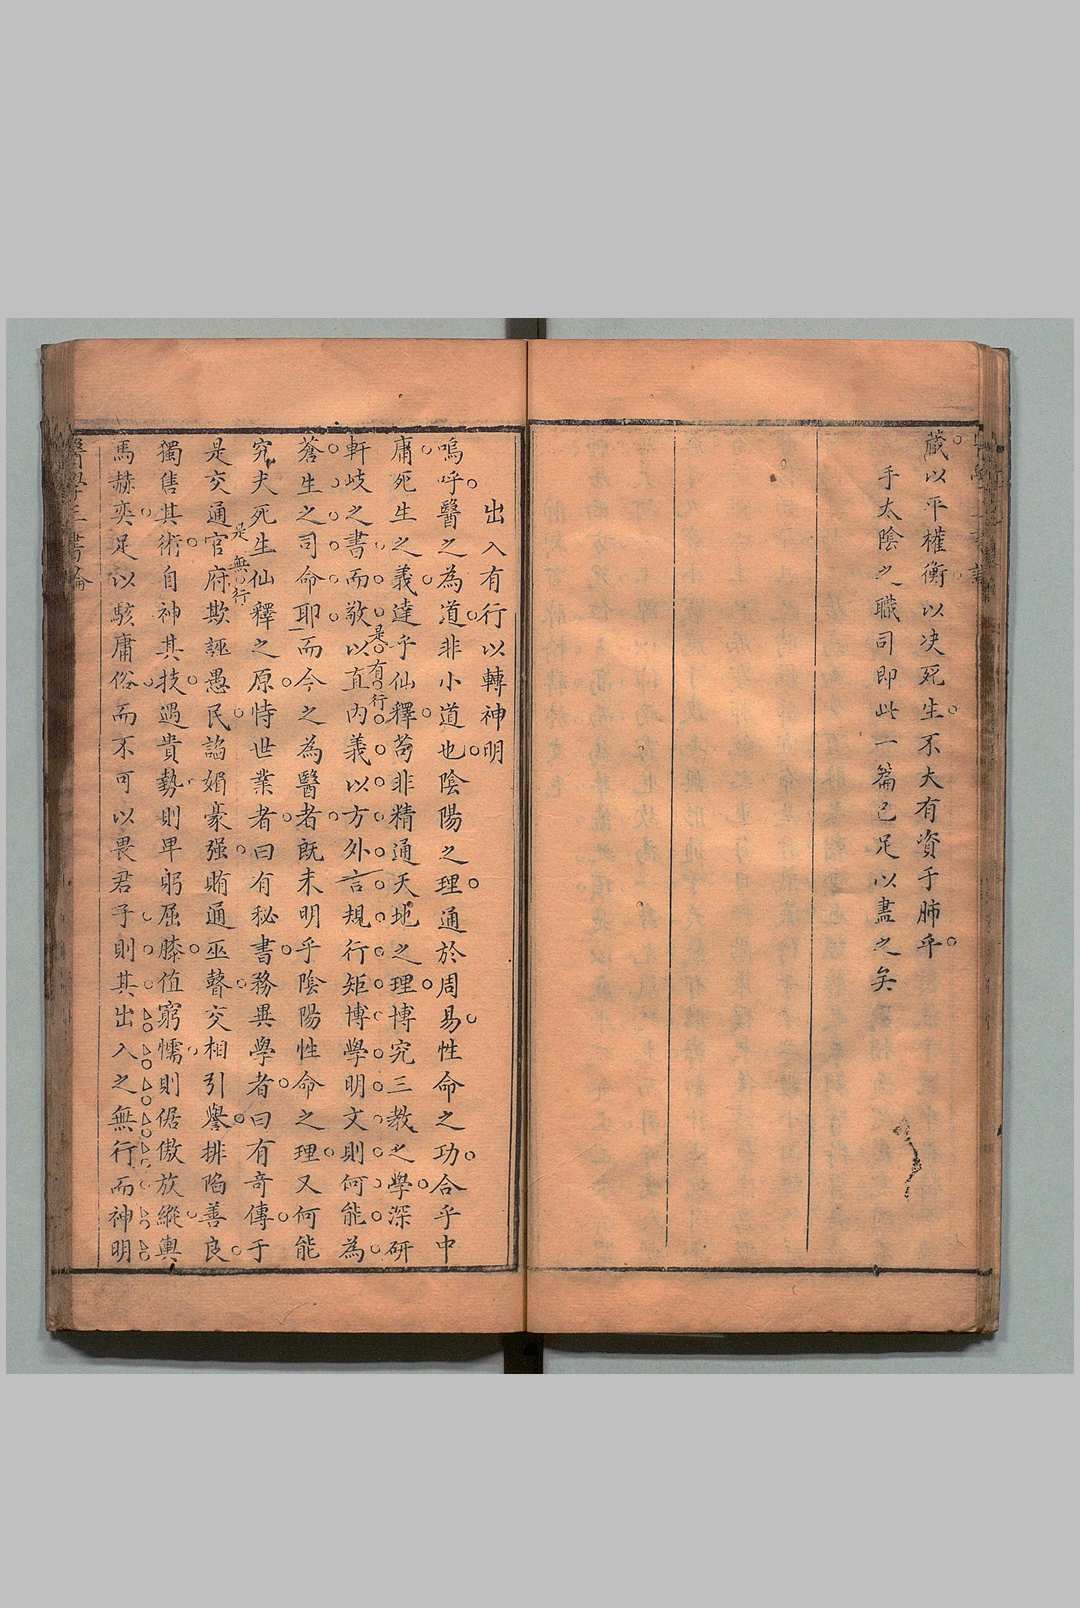 藏以平權衡以决死生不大有資于肺乎
手太陰之職司即此一篇已足以盡之矣
出入有行以轉神明
嗚呼醫之為道非小道也陰陽之理通於周易性命之功合乎中
庸死生之義達乎仙釋苟非精通天地之理博究三教之學深研
軒岐之書而敬以直內義以方外言規行矩博學明文則何能為
是有行
蒼生之司命耶而今之為醫者既未明乎陰陽性命之理又何能
究夫死生仙釋之原恃世業者曰有秘書務異學者曰有奇傳于
是無行
是交通官府欺誣愚民諂媚豪强賄通巫瞽交相引譽排陷善良
獨售其術自神其技遇貴勢則卑躬屈膝值窮懦則倨傲放縱輿
馬赫奕足以駭庸俗而不可以畏君子則其出入之無行而神明